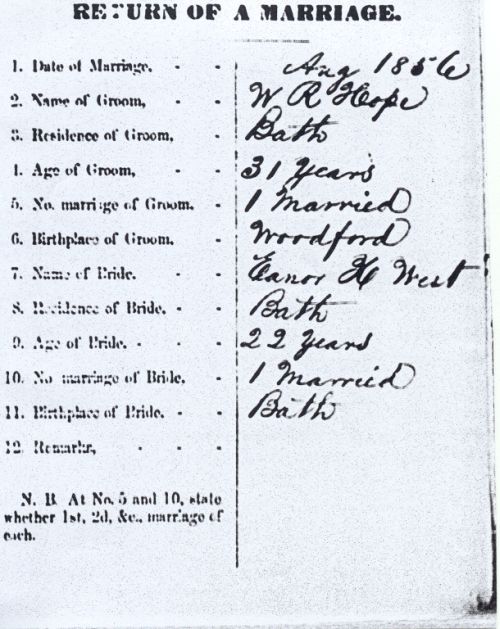 RETURN OF A MARRIAGE.
1. Date of Marriage, - - Aug 1856
2. Name of Groom, - - W R Hope
3. Residence of Groom, - Bath
4. Age of Groom, - - 31 Years
5. No. marriage of Groom. - 1 Married
6. Birthplace of Groom, - Woodford
7. Name of Bride. - - Eanor H West
8. Residence of Bride. - - Bath
9. Age of Bride. - - - 22 Years
10. No marriage of Bride, - 1 Married
11. Birthplace of Bride. - - Bath
12. Remarks, - - -
N. B. At No. 5 and 10, state
whether 1st, 2d, &c., marriage of
each.